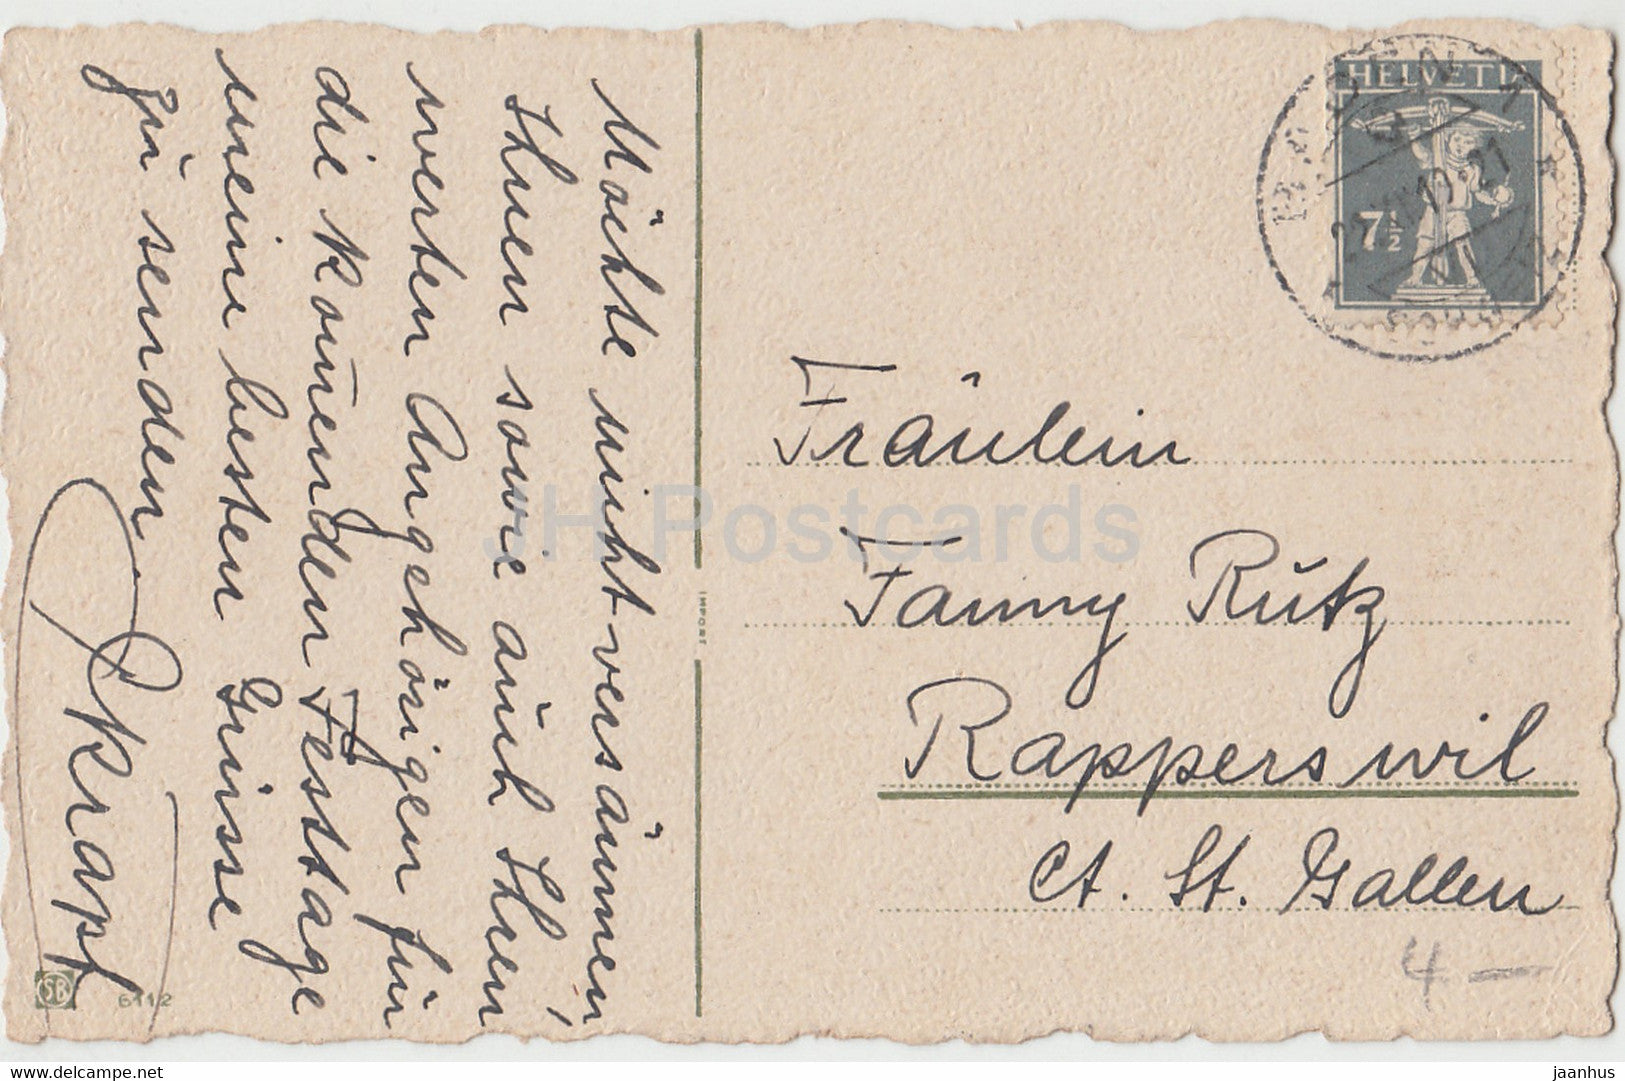 Möchte nicht versäumen,
Ihnen sowie auch Ihren
werten Angehörigen für
die kom̄enden Festtage
meine besten Grüsse
zu senden.
Krapf
SB
6112
IMPORT
HELVETIA
7½
Fräulein
Fanny Rütz
Rapperswil
Ct. St. Gallen
4 —
JH Postcards
delcampe.net
jaanhus